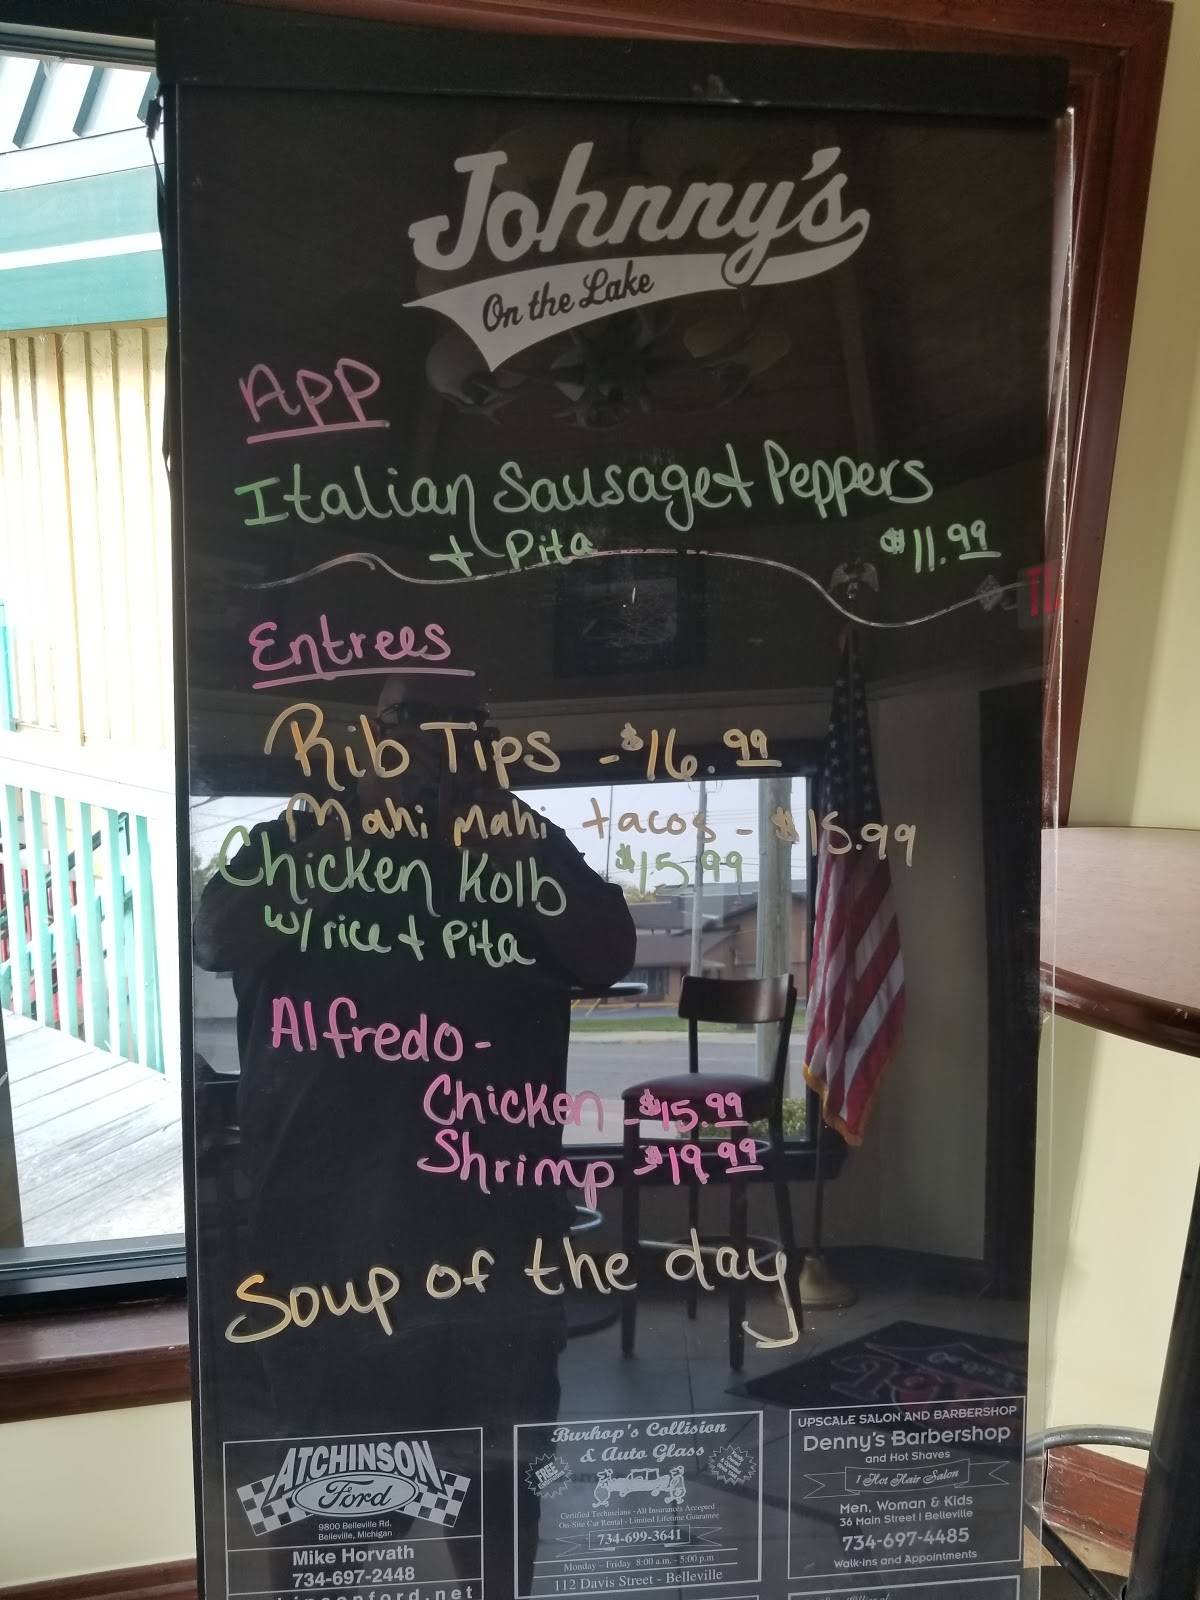 Johnny's
On the Lake
App
Italian Sausage + Peppers
+ Pita $11.99
Entrees
Rib Tips - $16.99
Mahi Mahi tacos - $15.99
Chicken Kolb $15.99
w/ rice + Pita
Alfredo -
Chicken - $15.99
Shrimp $19.99
Soup of the day
ATCHINSON
Ford
9800 Belleville Rd.
Belleville, Michigan
Mike Horvath
734-697-2448
Burhop's Collision
& Auto Glass
FREE
Certified Technicians - All Insurances Accepted
On-Site Car Rental - Limited Lifetime Guarantee
734-699-3641
Monday - Friday 8:00 a.m. - 5:00 p.m
112 Davis Street - Belleville
UPSCALE SALON AND BARBERSHOP
Denny's Barbershop
and Hot Shaves
1 Hot Hair Salon
Men, Woman & Kids
36 Main Street | Belleville
734-697-4485
Walk-ins and Appointments